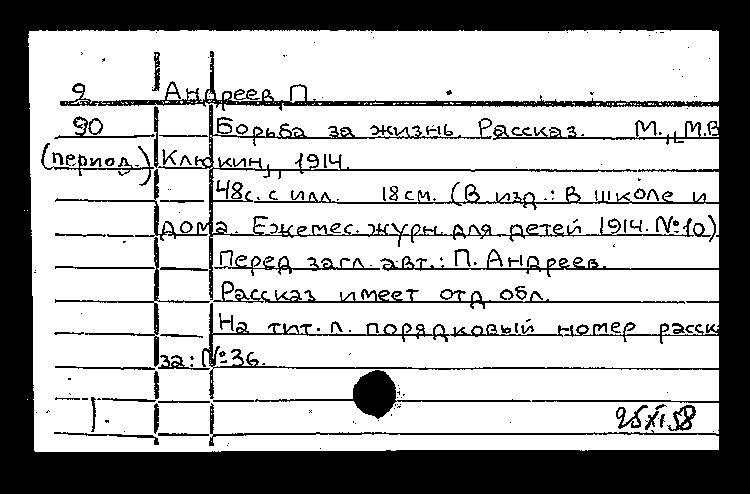 9 Андреев, П.
90 Борьба за жизнь. Рассказ. М., „М.В
(период.) Клюкин„, 1914.
48с. с илл. 18см. (В изд.: В школе и
дома. Ежемес. журн. для детей 1914. №10)
Перед загл. авт.: П. Андреев.
Рассказ имеет отд. обл.
На тит. л. порядковый номер расска
за: №36.
1.
25/XI 58